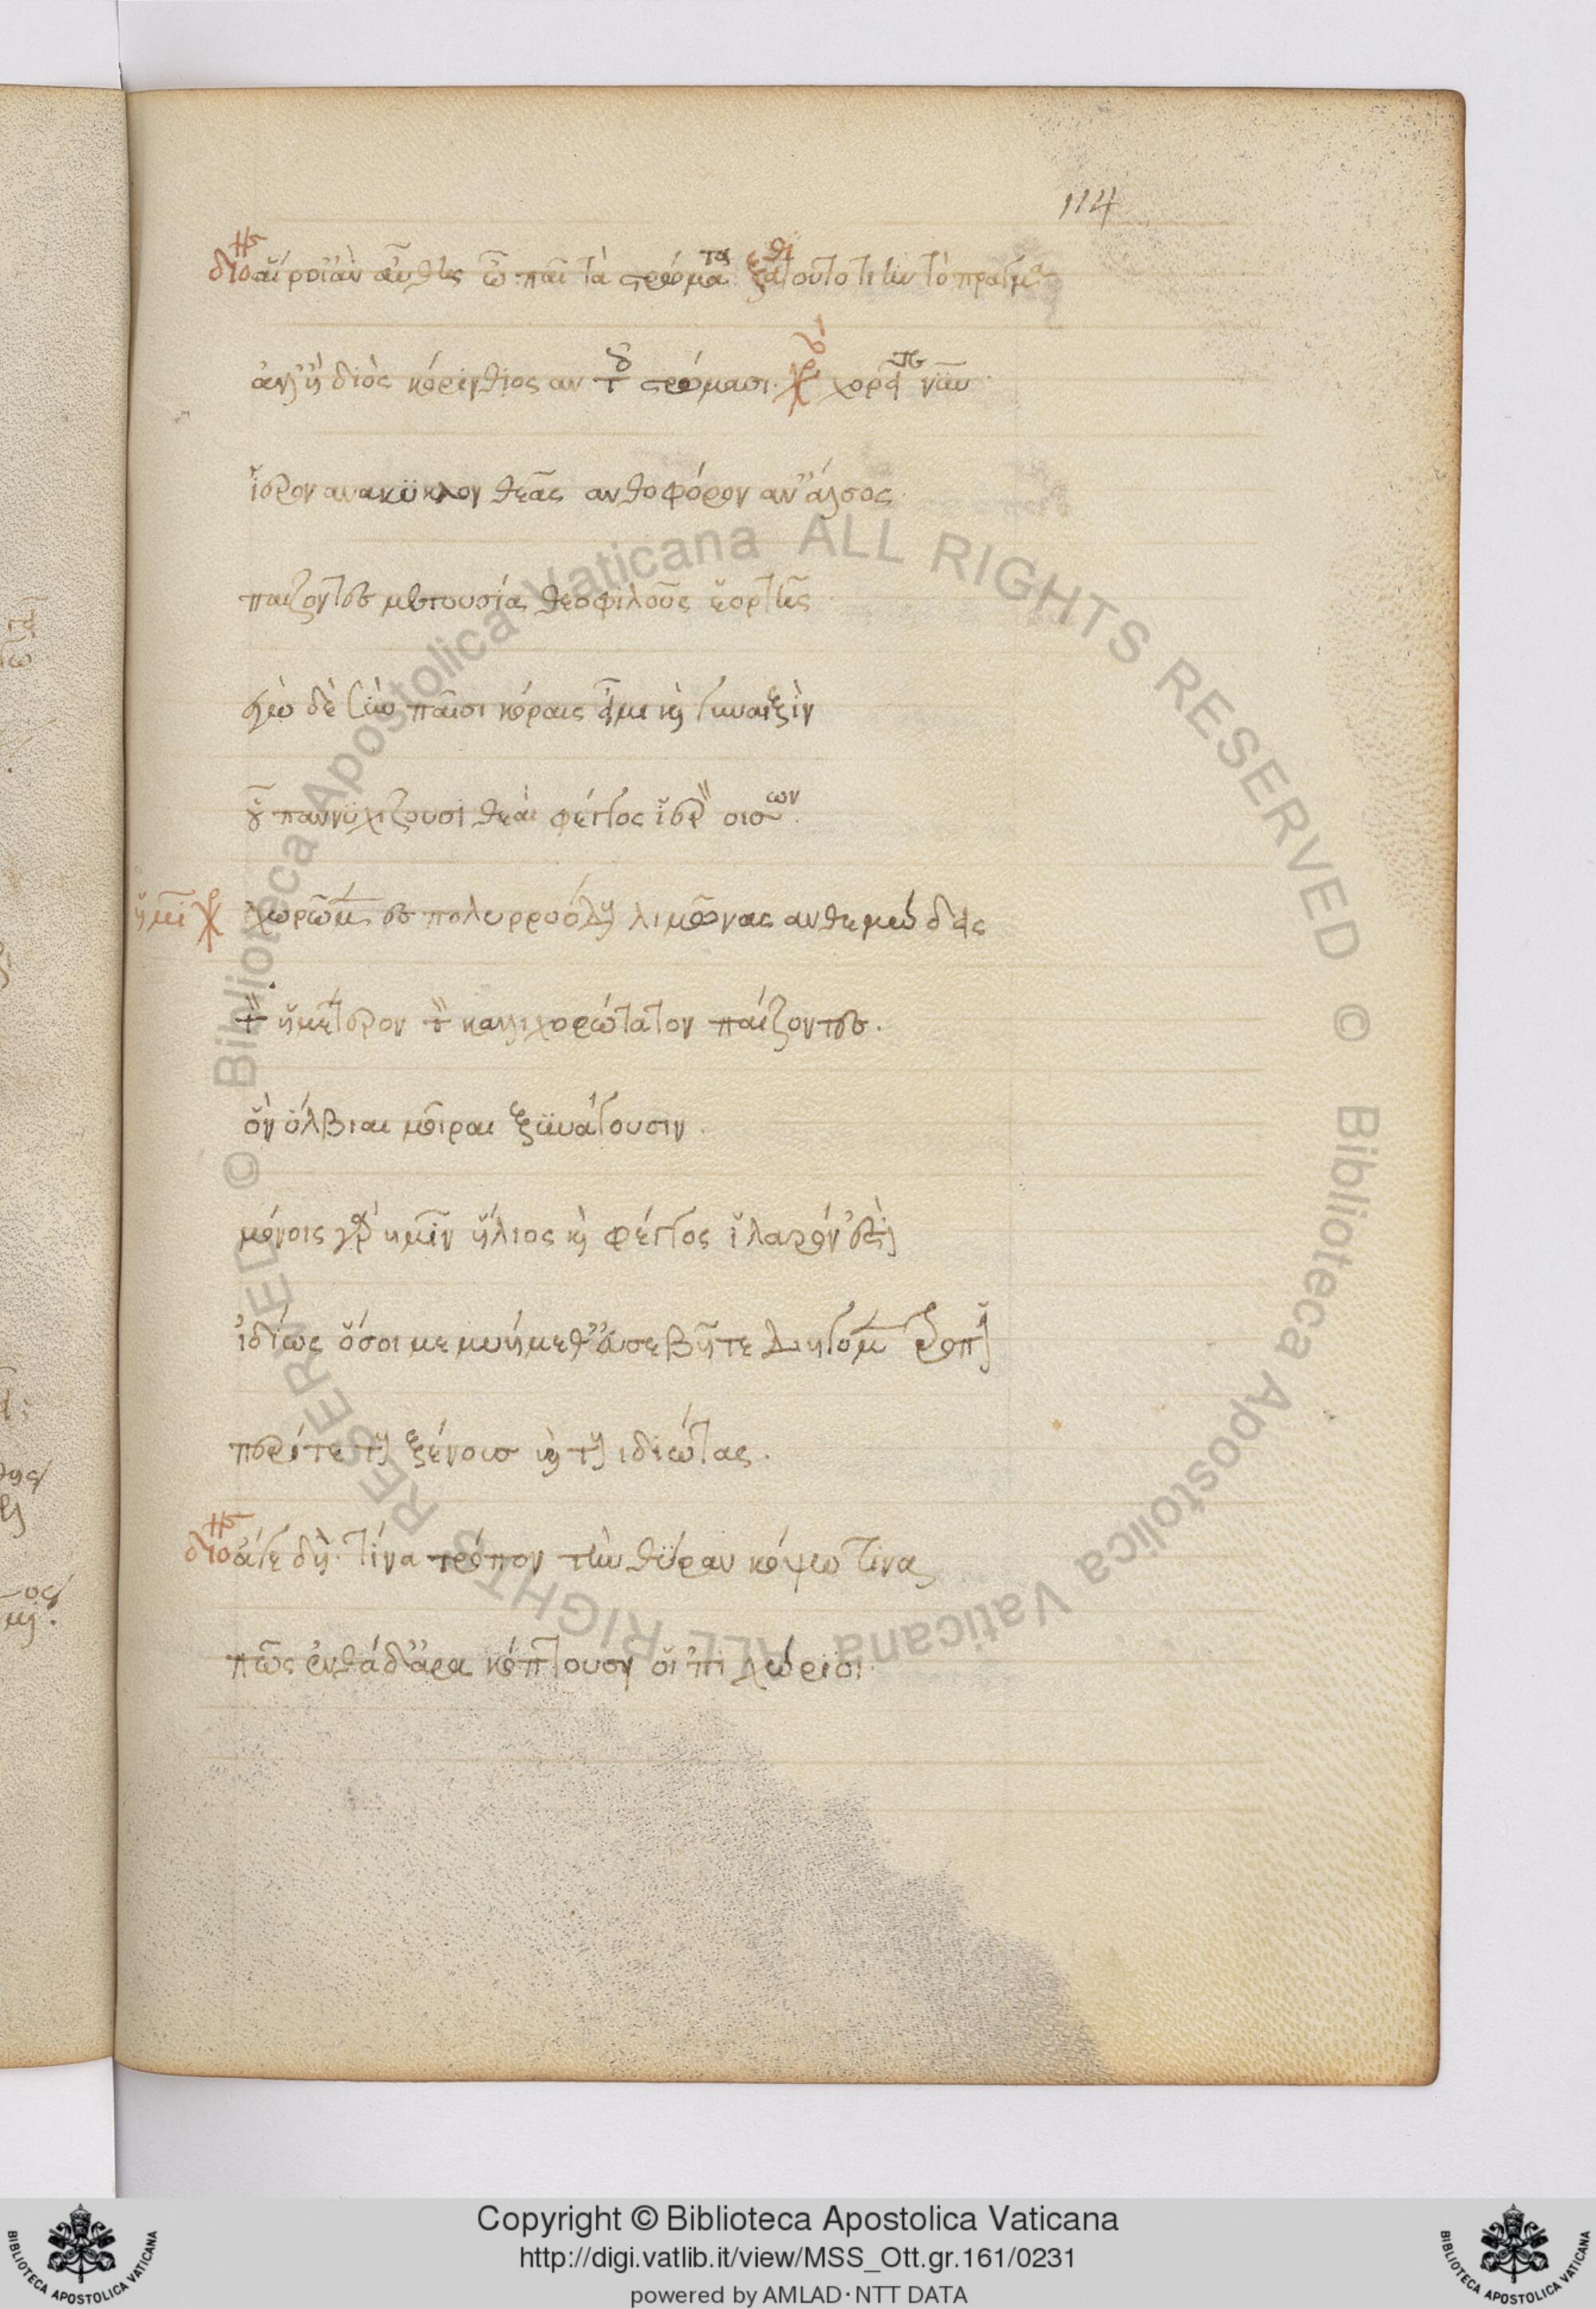 114
διο αἴροι ἂν αὖθις ὦ παῖ τὰ στρώματα ξαθι τουτὶ τί ἦν τὸ πράγμα
ἀλλ' ἢ διὸς κόρινθος ἐν τοῖς στρώμασι. χορ χορὸς νῦν
ἱερὸν ἀνα κύκλον θεᾶς ἀνθοφόρον ἀν' ἄλσος.
παίζοντες μετουσία θεοφιλοῦς ἑορτῆς
ἐγὼ δὲ σὺν παῖσι κόραις εἶμι καὶ γυναιξὶν
οὗ παννυχίζουσι θεᾶι φέγγος ἱερὸν οἴσων.
ἡμι χορ χωρῶμεν ἐς πολυρρόδους λιμῶνας ἀνθεμώδεις
τὸν ἡμέτερον τὸν καλλιχορώτατον παίζοντες.
ὃν ὄλβιαι μοῖραι ξυνάγουσιν.
μόνοις γὰρ ἡμῖν ἥλιος καὶ φέγγος ἱλαρόν ἐστιν
ὅσοι μεμυήμεθ' εὐσεβῆ τε διήγομεν τρόπον
περί τε τοὺς ξένους καὶ τοὺς ἰδιώτας.
διο ἄγε δὴ τίνα τρόπον τὴν θύραν κόψω τίνα
πῶς ἐνθάδ' ἄρα κόπτουσιν οἱ ἐπιχώριοι.
© Biblioteca Apostolica Vaticana ALL RIGHTS RESERVED © Biblioteca Apostolica Vaticana ALL RIGHTS RESERVED
Copyright © Biblioteca Apostolica Vaticana
http://digi.vatlib.it/view/MSS_Ott.gr.161/0231
powered by AMLAD·NTT DATA
BIBLIOTECA APOSTOLICA VATICANA
BIBLIOTECA APOSTOLICA VATICANA